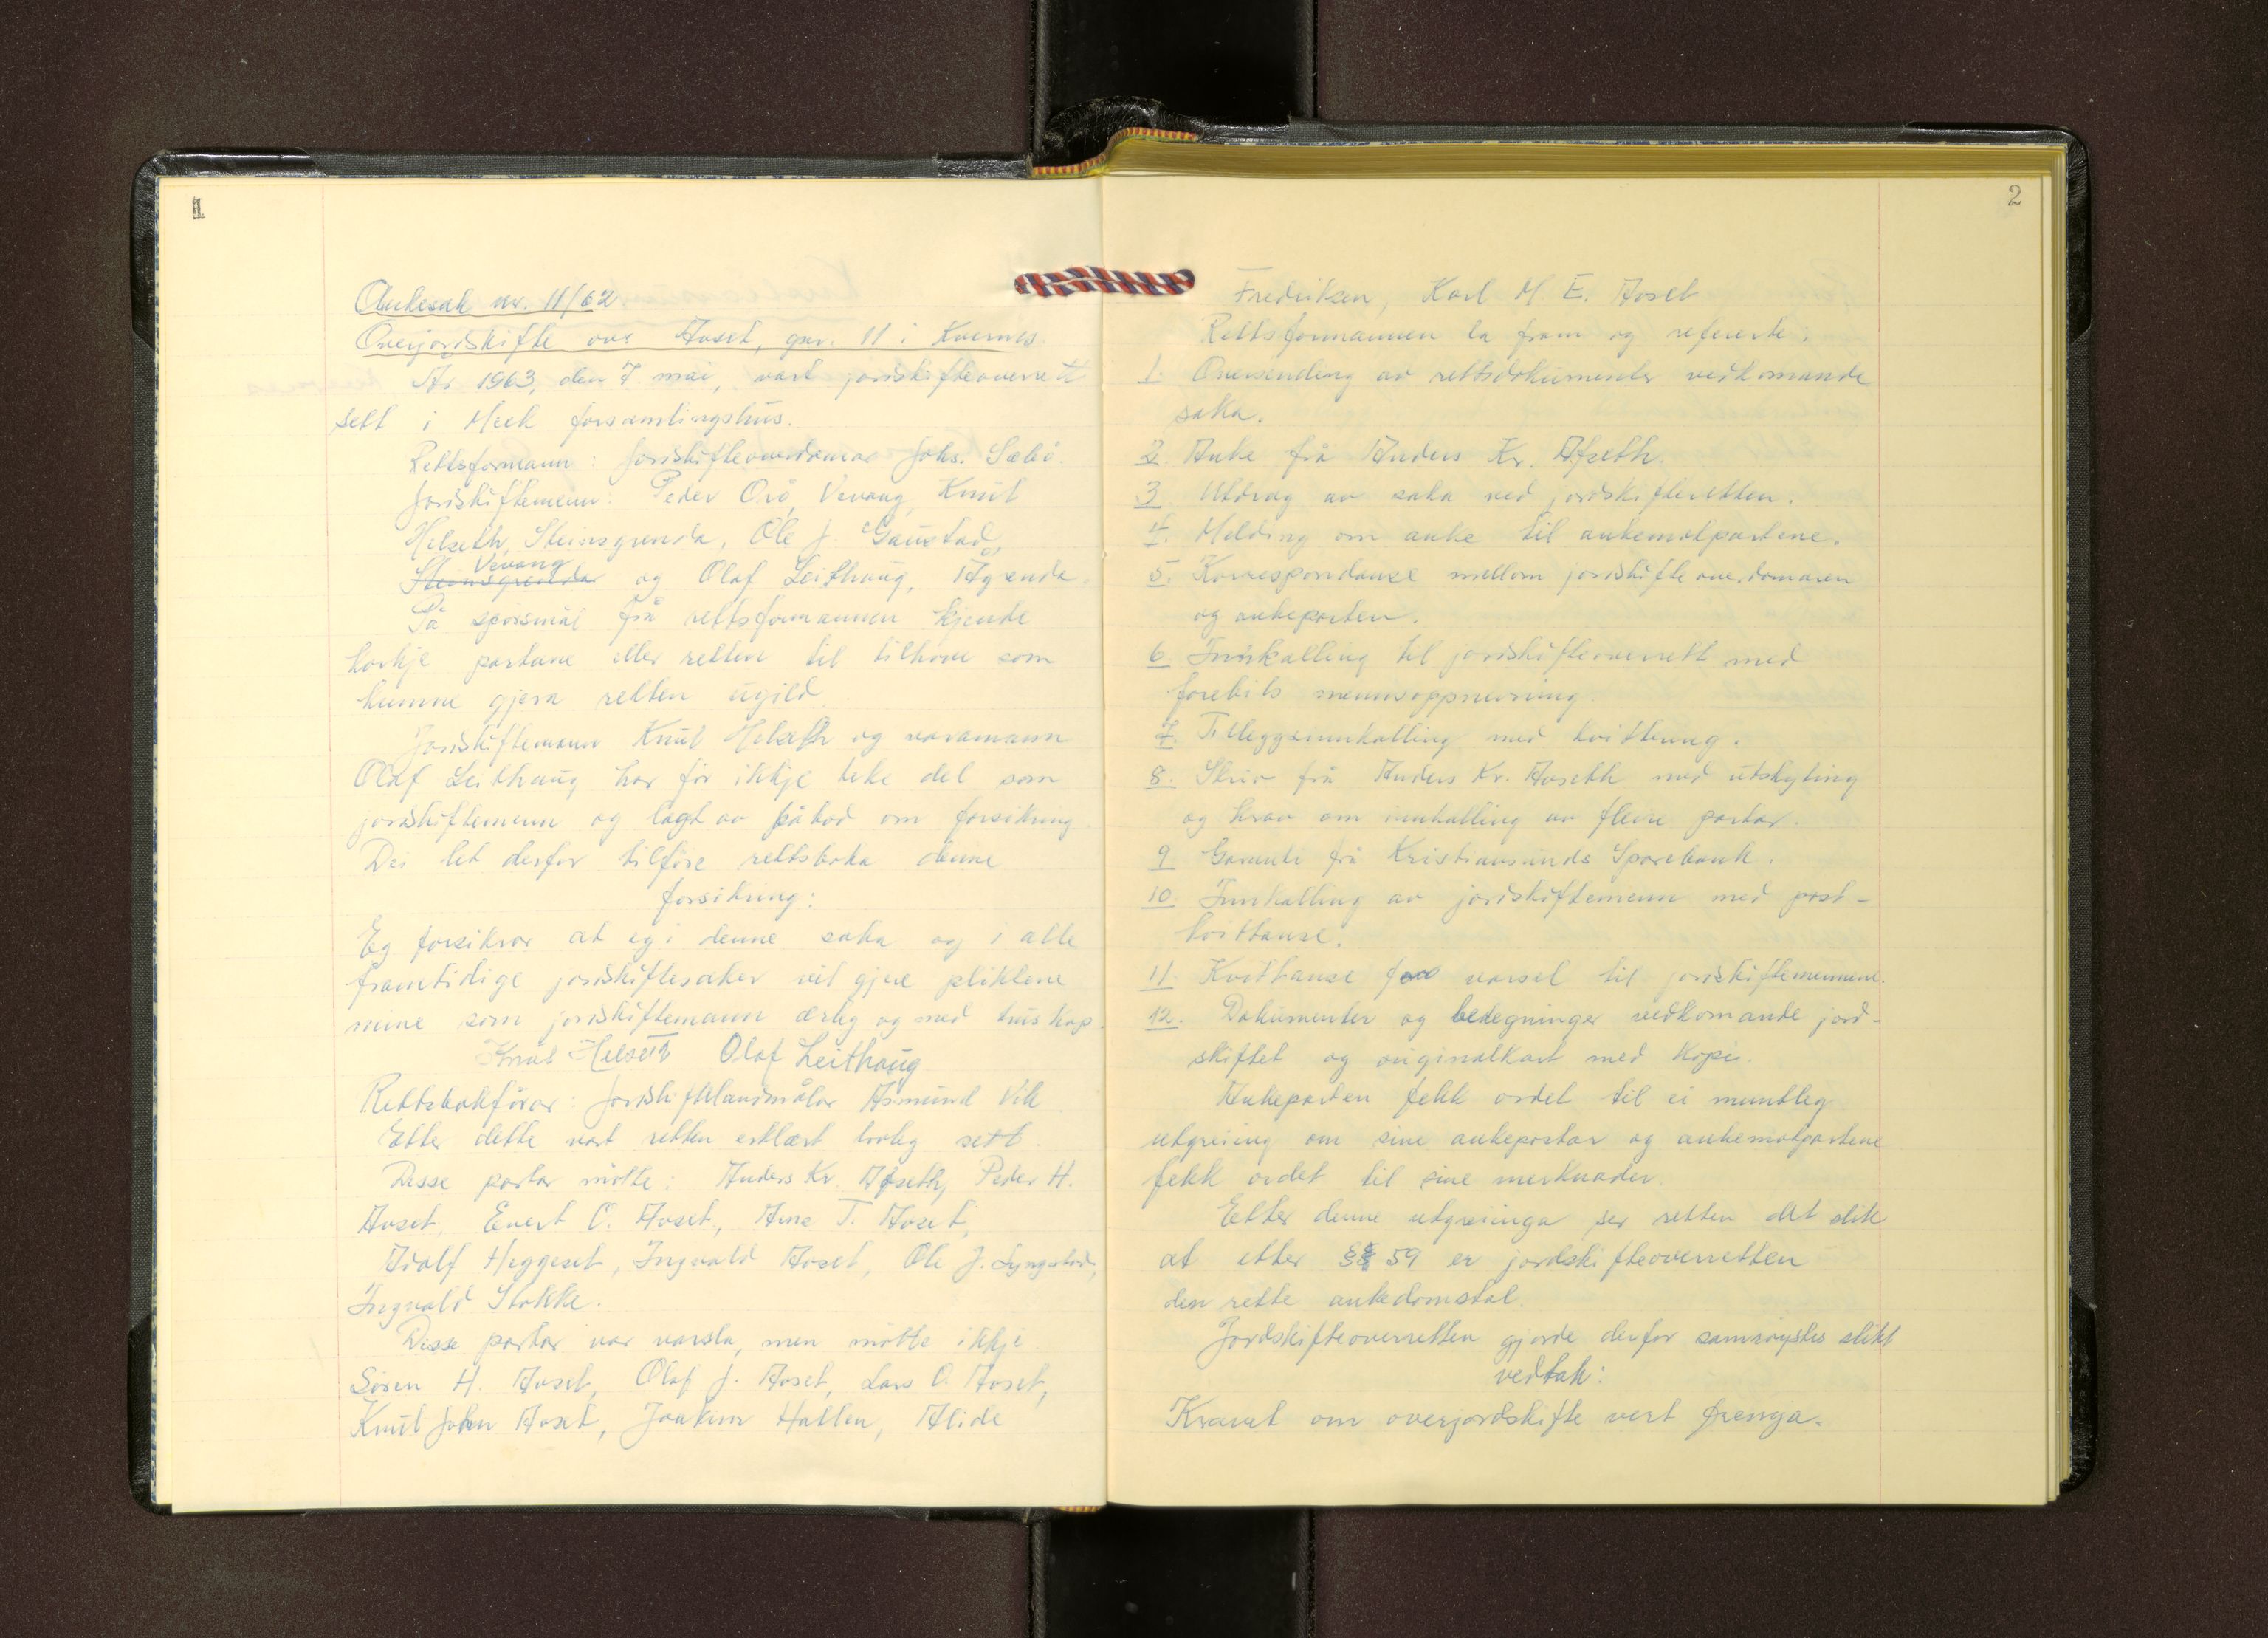 1
Ankesak nr. 11/62
Overjordskifte over Aaset, gnr. 11 i Kvernes.
År 1963, den 7 mai, vart jordskifteoverrett
sett i Meek forsamlingshus.
Rettsformann: Jordskifteoverdomar Johs. Sæbö.
Jordskiftemenn: Peder Orö, Vevang, Knut
Helseth, Steinsgrenda, Ole J. Gaustad,
Vevang
Steinsgrenda og Olaf Leithaug, Ågrenda.
På spörsmål frå rettsformannen kjende
korkje partane eller retten til tilhöve som
kunne gjera retten ugild.
Jordskiftemann Knut Helseth og varamann
Olaf Leithaug har för ikkje teke del som
jordskiftemenn og lagt av påbod om forsikring.
Dei let derfor tilföre rettsboka denne
forsikring:
Eg forsikrar at eg i denne saka og i alle
framtidige jordskiftesaker vil gjere pliktene
mine som jordskiftemann ærleg og med truskap.
Knut Helseth Olaf Leithaug
Rettsbokförar: Jordskiftelandmålar Asmund Vik
Etter dette vart retten erklært lovleg sett.
Disse partar mötte: Anders Kr. Aaseth, Peder H.
Aaset, Evert O. Aaset, Arne T. Aaset,
Adolf Heggeset, Ingvald Aaset, Ole J. Lyngstad,
Ingvald Stokke.
Disse partar var varsla, men mötte ikkje
Sören H. Aaset, Olaf J. Aaset, Lars O. Aaset,
Knut John Aaset, Joakim Hallen, Alide
2
Fredriksen, Karl M. E. Aaset
Rettsformannen la fram og refererte:
1. Oversending av rettsdokumenter vedkomande
saka.
2. Anke frå Anders Kr. Aaseth.
3. Utdrag av saka ved jordskifteretten.
4. Melding om anke til ankemotpartene.
5. Korrespondanse mellom jordskifteoverdomaren
og ankeparten.
6. Innkalling til jordskifteoverrett med
forebils mannsoppnevning
7. Tilleggsinnkalling med kvittering.
8. Skriv frå Anders Kr. Aaseth med utskyting
og krav om innkalling av fleire partar.
9. Garanti frå Kristiansunds Sparebank.
10. Innkalling av jordskiftemenn med post-
kvittanse.
11. Kvittanse for varsel til jordskiftemennene.
12. Dokumenter og utdegninger vedkomande jord-
skiftet og originalkart med kopi.
Ankeparten fekk ordet til ei muntleg
utgreiing om sine ankepostar og ankemotpartene
fekk ordet til sine merknader.
Etter denne utgreiinga ser retten det slik
at etter §§ 59 er jordskifteoverretten
den rette ankedomstol.
Jordskifteoverretten gjorde derfor samröystes slikt
vedtak:
Kravet om overjordskifte vert frenga.